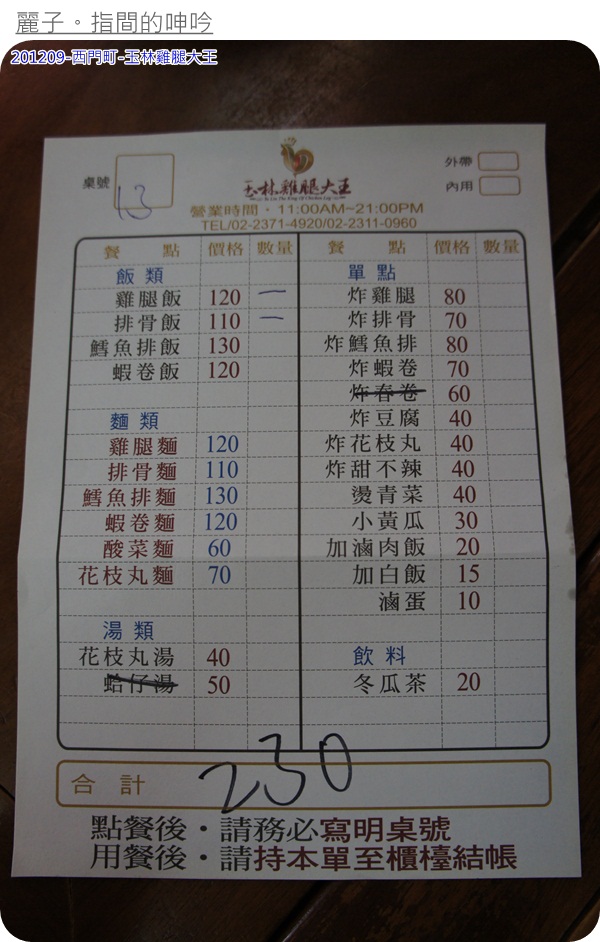 麗子。指間的呻吟
201209-西門町-玉林雞腿大王
桌號 13
玉林雞腿大王
外帶
內用
營業時間・11:00AM~21:00PM
TEL/02-2371-4920/02-2311-0960
餐點 價格 數量 餐點 價格 數量
飯類 單點
雞腿飯 120 一 炸雞腿 80
排骨飯 110 一 炸排骨 70
鱈魚排飯 130 炸鱈魚排 80
蝦卷飯 120 炸蝦卷 70
炸春卷 60
麵類 炸豆腐 40
雞腿麵 120 炸花枝丸 40
排骨麵 110 炸甜不辣 40
鱈魚排麵 130 燙青菜 40
蝦卷麵 120 小黃瓜 30
酸菜麵 60 加滷肉飯 20
花枝丸麵 70 加白飯 15
滷蛋 10
湯類
花枝丸湯 40 飲料
蛤仔湯 50 冬瓜茶 20
合計 230
點餐後・請務必寫明桌號
用餐後・請持本單至櫃檯結帳